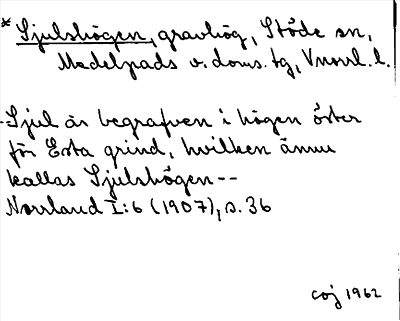 * Sjulshögen, gravhög, Stöde sn,
Medelpads v. doms. tg, Vnorrl. l.
Sjul är begrafven i högen öster
för Erta grind, hvilken ännu
kallas Sjulshögen--
Norrland I:6 (1907), s. 36
coj 1962